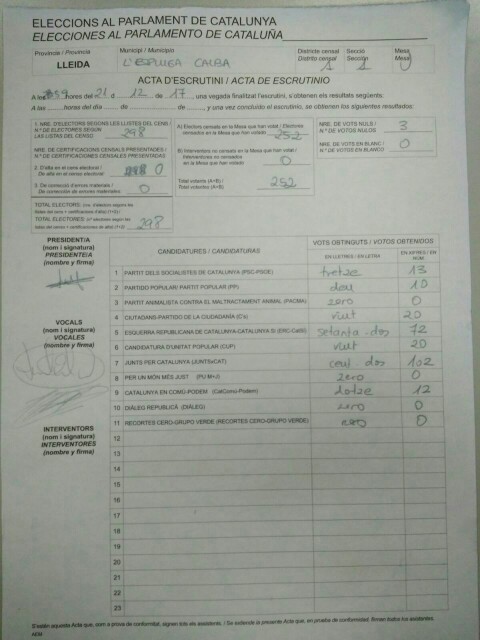 ELECCIONS AL PARLAMENT DE CATALUNYA
ELECCIONES AL PARLAMENTO DE CATALUÑA
Província / Provincia
LLEIDA
Municipi / Municipio
L'ESPLUGA CALBA
Districte censal
Distrito censal
1
Secció
Sección
1
Mesa
Mesa
U
ACTA D'ESCRUTINI / ACTA DE ESCRUTINIO
A les hores del 21 d 12 de 17, una vegada finalitzat l'escrutini, s'obtenen els resultats següents:
A las hores del día de de, y una vez concluido el escrutinio, se obtienen los siguientes resultados:
1. NRE. D'ELECTORS SEGONS LES LLISTES DEL CENS /
N.º DE ELECTORES SEGÚN
LAS LISTAS DEL CENSO 298
NRE. DE CERTIFICACIONS CENSALS PRESENTADES /
N.º DE CERTIFICACIONES CENSALES PRESENTADAS
2. D'alta en el cens electoral /
De alta en el censo electoral 0
3. De correcció d'errors materials /
De corrección de errores materiales 0
TOTAL ELECTORS:
TOTAL ELECTORES: 298
A) Electors censats en la Mesa que han votat / Electores
censados en la Mesa que han votado 252
B) Interventors no censats en la Mesa que han votat /
Interventores no censados
en la Mesa que han votado 0
Total votants (A+B) /
Total votantes (A+B) 252
NRE. DE VOTS NULS /
N.º DE VOTOS NULOS 3
NRE. DE VOTS EN BLANC /
N.º DE VOTOS EN BLANCO 0
PRESIDENT/A
(nom i signatura)
PRESIDENTE/A
(nombre y firma)
VOCALS
(nom i signatura)
VOCALES
(nombre y firma)
INTERVENTORS
(nom i signatura)
INTERVENTORES
(nombre y firma)
CANDIDATURES / CANDIDATURAS
VOTS OBTINGUTS / VOTOS OBTENIDOS
EN LLETRES / EN LETRA
EN XIFRES / EN NÚM.
1 PARTIT DELS SOCIALISTES DE CATALUNYA (PSC-PSOE) tretze 13
2 PARTIDO POPULAR/ PARTIT POPULAR (PP) deu 10
3 PARTIT ANIMALISTA CONTRA EL MALTRACTAMENT ANIMAL (PACMA) zero 0
4 CIUTADANS-PARTIDO DE LA CIUDADANÍA (C's) vuit 20
5 ESQUERRA REPUBLICANA DE CATALUNYA-CATALUNYA SÍ (ERC-CatSí) setanta-dos 72
6 CANDIDATURA D'UNITAT POPULAR (CUP) vuit 20
7 JUNTS PER CATALUNYA (JUNTSxCAT) cent dos 102
8 PER UN MÓN MÉS JUST (PUM+J) zero 0
9 CATALUNYA EN COMÚ-PODEM (CatComú-Podem) dotze 12
10 DIÁLEG REPUBLICÀ (DIÀLEG) zero 0
11 RECORTES CERO-GRUPO VERDE (RECORTES CERO-GRUPO VERDE) zero 0
12
13
14
15
16
17
18
19
20
21
22
23
S'estén aquesta Acta que, com a prova de conformitat, signen tots els assistents. / Se extiende la presente Acta que, en prueba de conformidad, firman todos los asistentes.